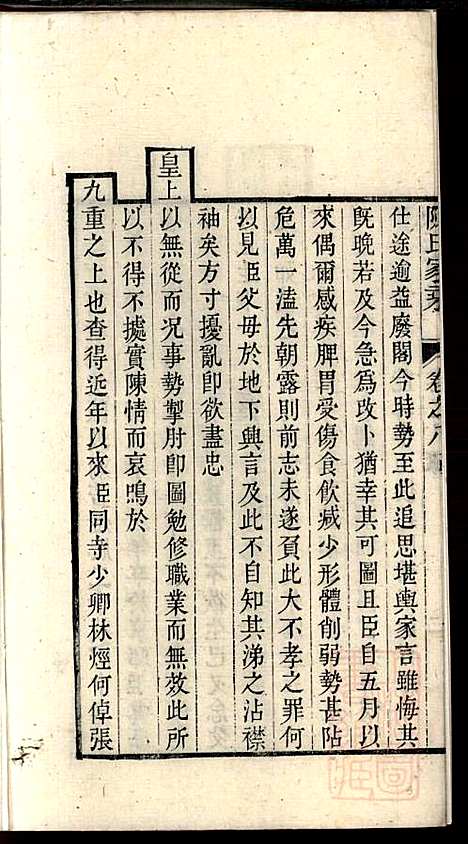 陳氏家乘
卷之八
仕途逾益廢閣今時勢至此追思堪輿家言雖悔其
既晚若及今急爲改卜猶幸其可圖且臣自五月以
來偶爾感疾脾胃受傷食飲減少形體削弱勢甚阽
危萬一溘先朝露則前志未遂負此大不孝之罪何
以見臣父母於地下興言及此不自知其涕之沾襟
袖矣方寸擾亂卽欲盡忠
皇上以無從而况事勢掣肘卽圖勉修職業而無效此所
以不得不據實陳情而哀鳴於
九重之上也查得近年以來臣同寺少卿林烴何倬張